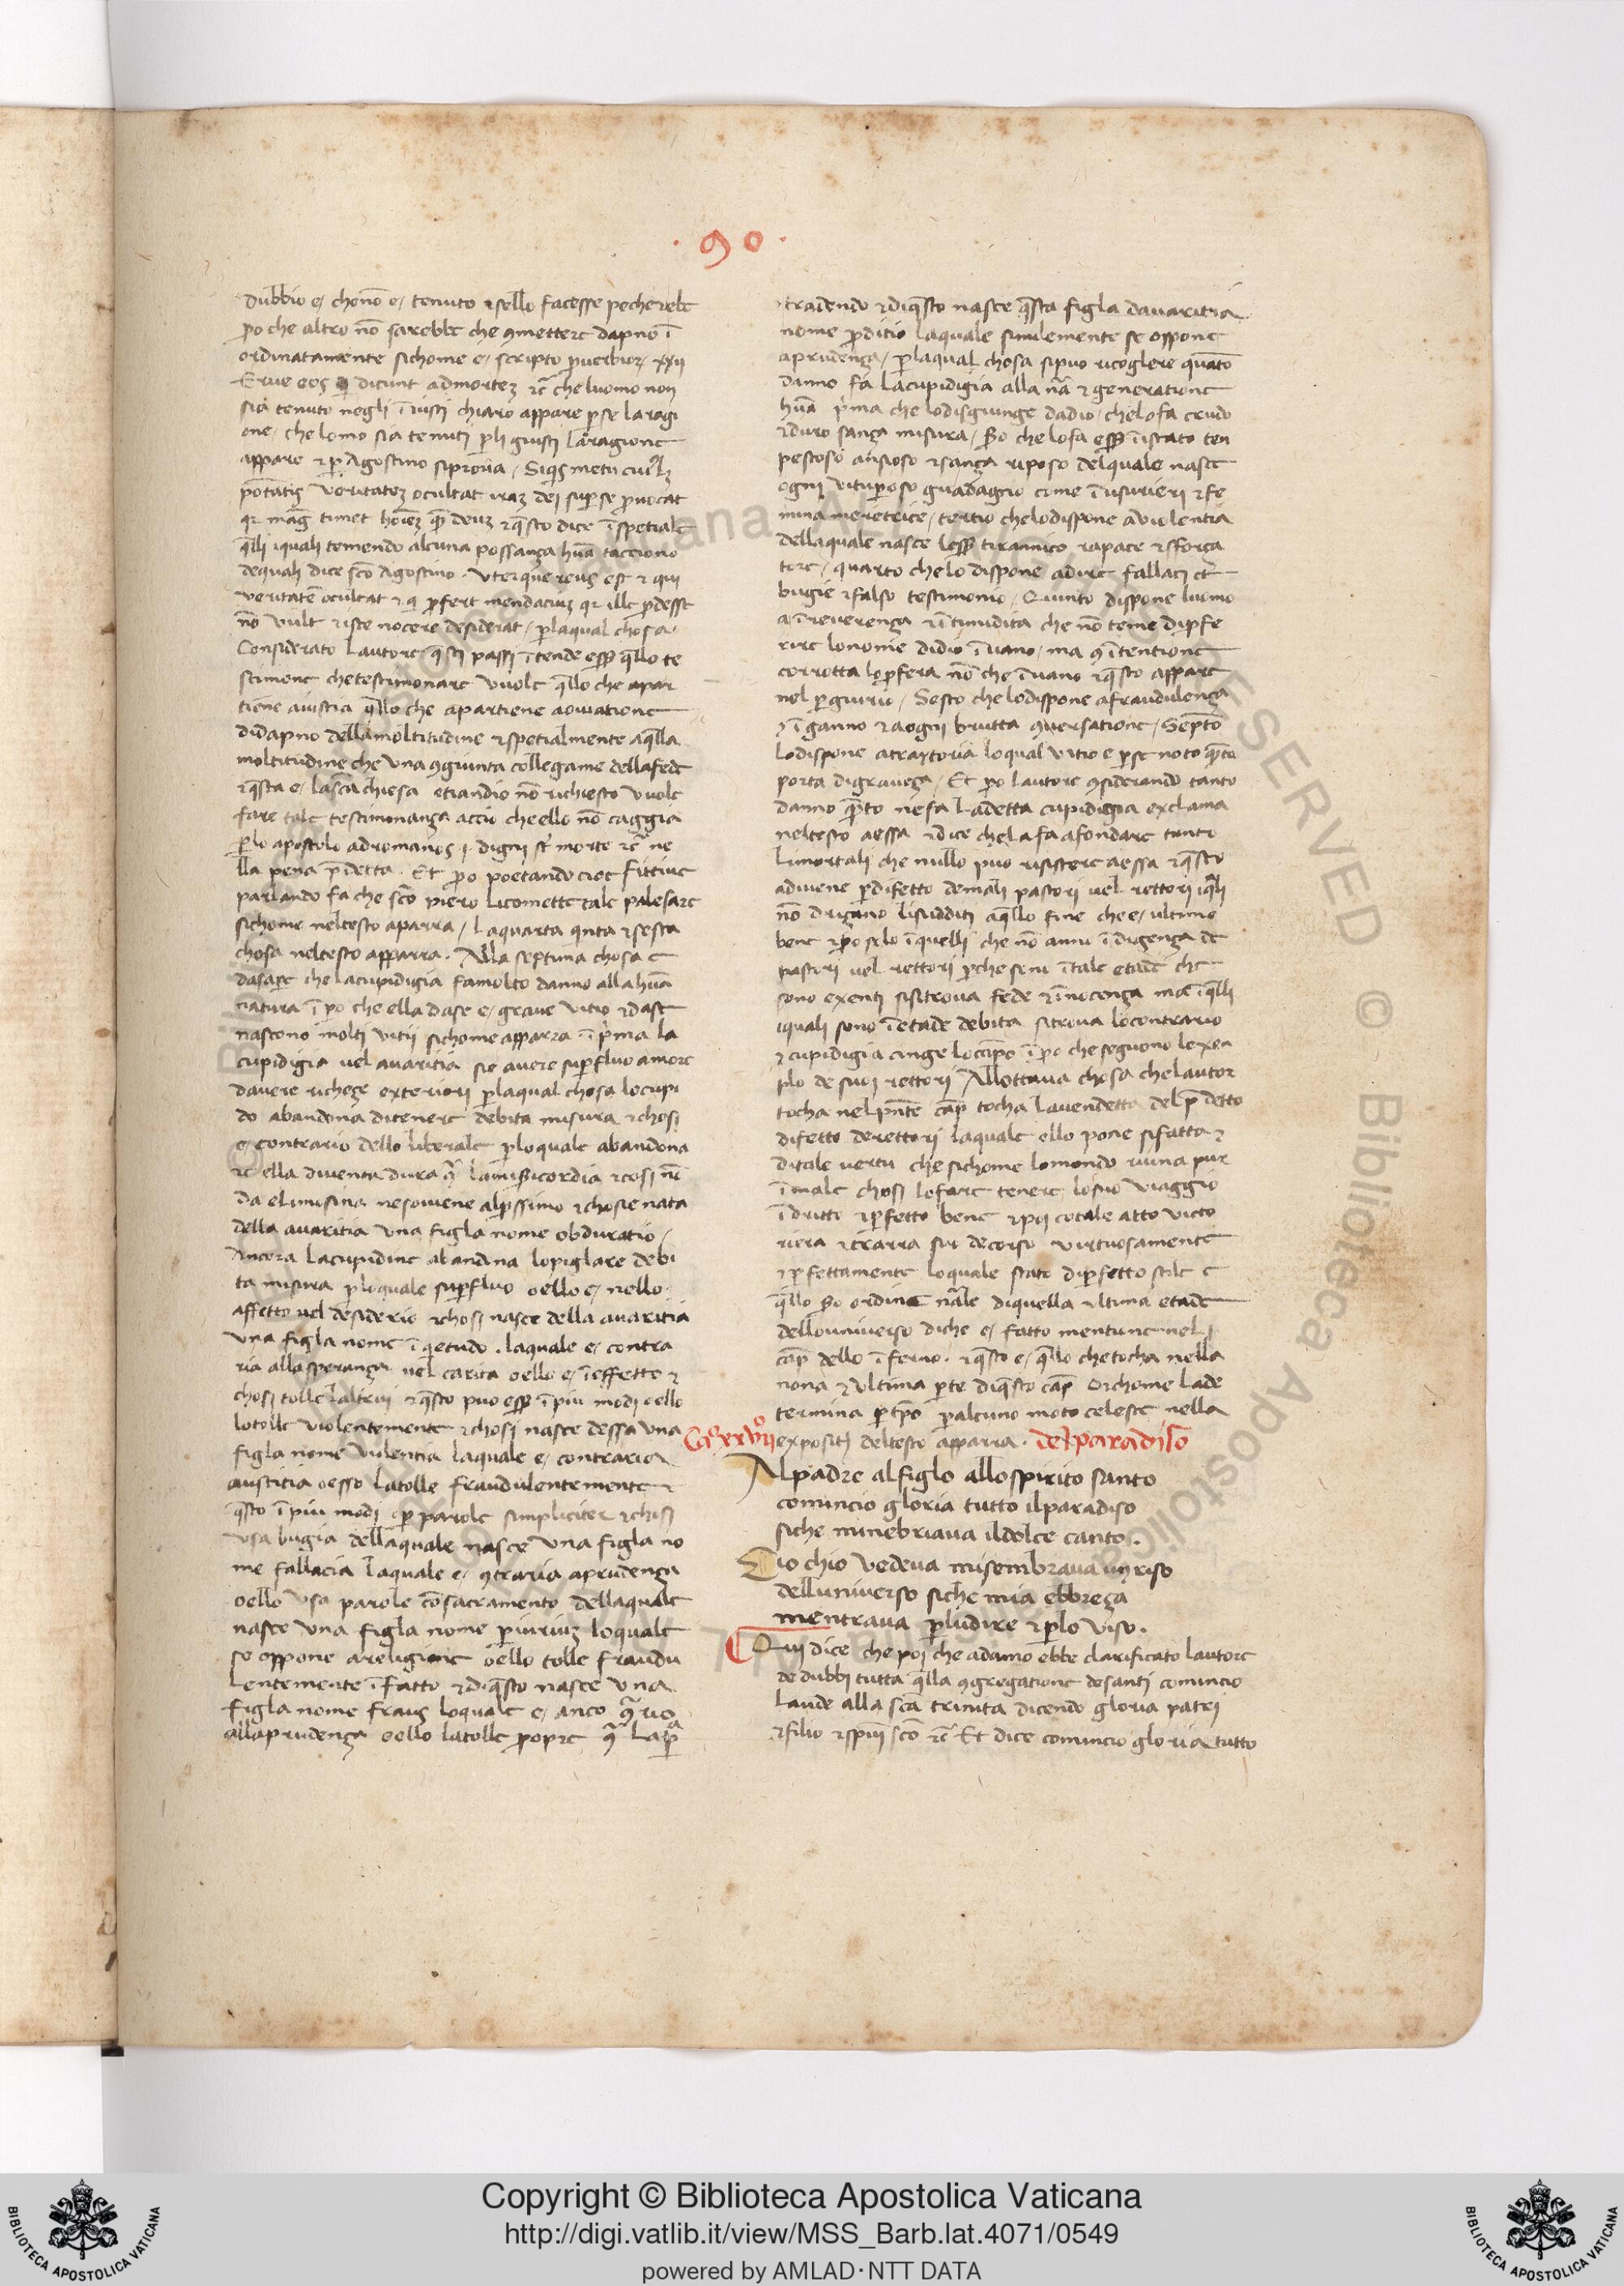 · 90 ·
dubbio e/ chenō e/ tenuto ⁊sello facesse pecherebe
ꝑo che altro nō sarebbe che ꝯmettere dapno ī
ordinatamente sichome e/ scripto ꝓuerbioꝝ xxij
Erue eos q̄ dicunt admorteꝫ ⁊c̄ che luomo non
sia tenuto negli ī iusti chiaro appare ꝑse laragi
one/ che lomo sia tenuti ꝑli giusti laragione
appare ⁊ꝑ Agostino siproua/ Siq̄s metu cuiꝰlꝫ
potātis veritateꝫ ocultat iraꝫ dei suꝑse ꝓuocat
qꝛ māg timet hoīeꝫ qm̄ deuꝫ ⁊q̄sto dice ī spetiale
q̄lli iquali temendo alcuna possança hūa tacciono
dequali dice sc̄o Agostino · Vterque reus est ⁊ qui
veritatē ocultat ⁊ q̄ ꝓfert mendaciuꝫ qꝛ ille ꝓdesse
nō vult ⁊iste nocere desiderat/ ꝑlaqual chosa
Considerato lautore q̄sti passi ītende esse q̄llo te
stimone chetestimonare vuole q̄llo che apar
tiene aiustia q̄llo che apartiene aouiatione
didāpno dellamoltitudine ⁊spetialmente aq̄lla
moltitudine che vna ꝯgiunta collegame dellafede
⁊q̄sta e/ lasc̄a chiesa etiandio nō richiesto vuole
fare tale testimonança accio cheello nō caggia
ꝑlo apostolo adromanos · j · digni st̄ morte ⁊c̄ ne
lla pena p̄detta · Et ꝑo poetando cioe fittiue
parlando fa che sc̄o piero licomette tale palesare
sichome neltesto aparra/ laquarta q̄nta ⁊sesta
chosa neltesto apparra · Alla septima chosa e
dasaꝑe che lacupidigia famolto danno allahūa
natura ī ꝑo che ella dase e/ graue vitio ⁊dase
nascono molti vitij sichome apparra ī p̄ma la
cupidigia uel auaritia sie auere suꝑfluo amore
dauere richeçe exteriori ꝑlaqual chosa locupi
do abandona ditenere debita misura ⁊chosi
e/ contrario dello liberale ꝑloquale abandona
⁊c ella diuenta dura ꝯ̄ lamisicordia ⁊cosi nō
da elimosina nesouuene alpssimo ⁊chosie nata
della auaritia vna figla nome obduratio/
Ancora lacupidine abandona lopiglare debi
ta misura ꝑloquale suꝑfluo oello e/ nello
affetto uel desiderio ⁊chosi nasce della auaritia
vna figla nome ī q̄etudo · laquale e/ contra
ria allasperança uel carita oello e/ ī effetto ⁊
chosi tolle laltrui ⁊q̄sto puo esse ī piu modi oello
lotolle violentemente ⁊chosi nasce dessa vna
figla nome violentia laquale e/ contraria
aiustitia oesso latolle fraudulentemente ⁊
q̄sto ī piu modi oꝑ parole simpliciter ⁊chosi
vsa bugia dellaquale nasce vna figla no
me fallacia laquale e/ ꝯtraria aprudença
oello vsa parole cō sacramento dellaquale
nasce vna figla nome ꝑiuriuꝫ loquale
se oppone areligione oello tolle fraudu
lentemente ī fatto ⁊diq̄sto nasce vna
figla nome fraus loquale e/ anco ꝯ̄rio
allaprudença oello latolle ꝓpre ꝯ̄ lapā
tradendo ⁊diq̄sto nasce q̄sta figla dauaritia
nome ꝓditio laquale similemente se oppone
aprudença/ ꝑlaqual chosa sipuo ricoglere quāto
danno fa lacupidigia alla nā ⁊ generatione
hūa p̄ma che lodisgiunge dadio/ chelofa crudo
⁊duro sança misura/ So che lofa esse ī istato ten
pestoso ansioso ⁊sança riposo delquale nasce
ogni vituꝑoso guadagno come ī usurieri ⁊fe
mina meretrice/ tertio chelodispone aviolentia
dellaquale nasce lesse tirannico rapace ⁊sforça
tore/ quarto chelo dispone adire fallaci et
bugie ⁊falso testimonio/ Quinto dispone luomo
a ī reuerença ⁊ītimidita che nō teme diꝓfe
rire lonome didio ī uano/ ma ꝯ ītentione
corrotta loꝓfera nō che ī uano ⁊q̄sto appare
nel ꝑgiurio/ Sesto che lodispone afraudulença
⁊ īganno ⁊aogni brutta ꝯuersatione/ Septo
lodispone atraytoria loqual vitio e ꝑse noto qm̄to
porta digraueça/ Et ꝑo lautore ꝯsiderando tanto
danno qm̄to nefa ladetta cupidigia exclama
neltesto aessa ⁊dice chela fa afondare tanto
limortali che nullo puo risistere aessa ⁊q̄sto
adiuene ꝑdifetto demali pastori uel rettori iq̄li
nō driçano lisudditi aq̄llo fine che e/ ultimo
bene ⁊ꝑo solo ī quelli che nō anni ī digença de
pastori uel rettori ꝑche seni ītale etade che
sono exenti sisitroua fede ⁊īnocença ma ī q̄lli
iquali sono ī etade debita sitroua locontrario
⁊cupidigia cinge locāpo ī ꝑo che seguono loxen
plo de suoi rettori Allottaua chosa chelautor
tocha nelpn̄te cap̄ tocha lauendetta delp̄detto
difetto derettori laquale ello pone sifatta ⁊
ditale uertu che sichome lomondo ruina pur
ī male chosi lofare tenere losuo viaggio
ī dritto ⁊ꝑfetto bene ⁊poi cotale atto victo
riera ⁊trarra suo decorso virtuosamente
⁊ꝑfettamente loquale stato diꝑfetto stile e
q̄llo So ordine nāle diquella ultima etade
dellouniuerso diche e/ fatto mentione nel j
cap̄ dello ī ferno · ⁊q̄sto e/ q̄llo chetocha nella
nona ⁊ultima ꝑte diq̄sto cap̄ Orchome lade
termina ꝑ tp̄o ꝑalcuno moto celeste nella
Caº xxvijº
expositi deltesto apparra · del paradiso
Alpadre alfiglo allospirito santo
comincio gloria tutto ilparadiso
siche minebriaua ildolce canto ·
Cio chio vedeua misembraua un riso
delluniuerso siche mia ebbreça
mentraua ꝑludire ⁊ꝑlo viso ·
Qui dice che poi che adamo ebbe clarificato lautore
de dubbi tutta q̄lla ꝯgregatione desanti comincio
laude alla sc̄a trinita dicendo gloria patri
⁊filio ⁊spūi sc̄o ⁊c̄ Et dice comincio gloria tutto
Copyright © Biblioteca Apostolica Vaticana
http://digi.vatlib.it/view/MSS_Barb.lat.4071/0549
powered by AMLAD·NTT DATA